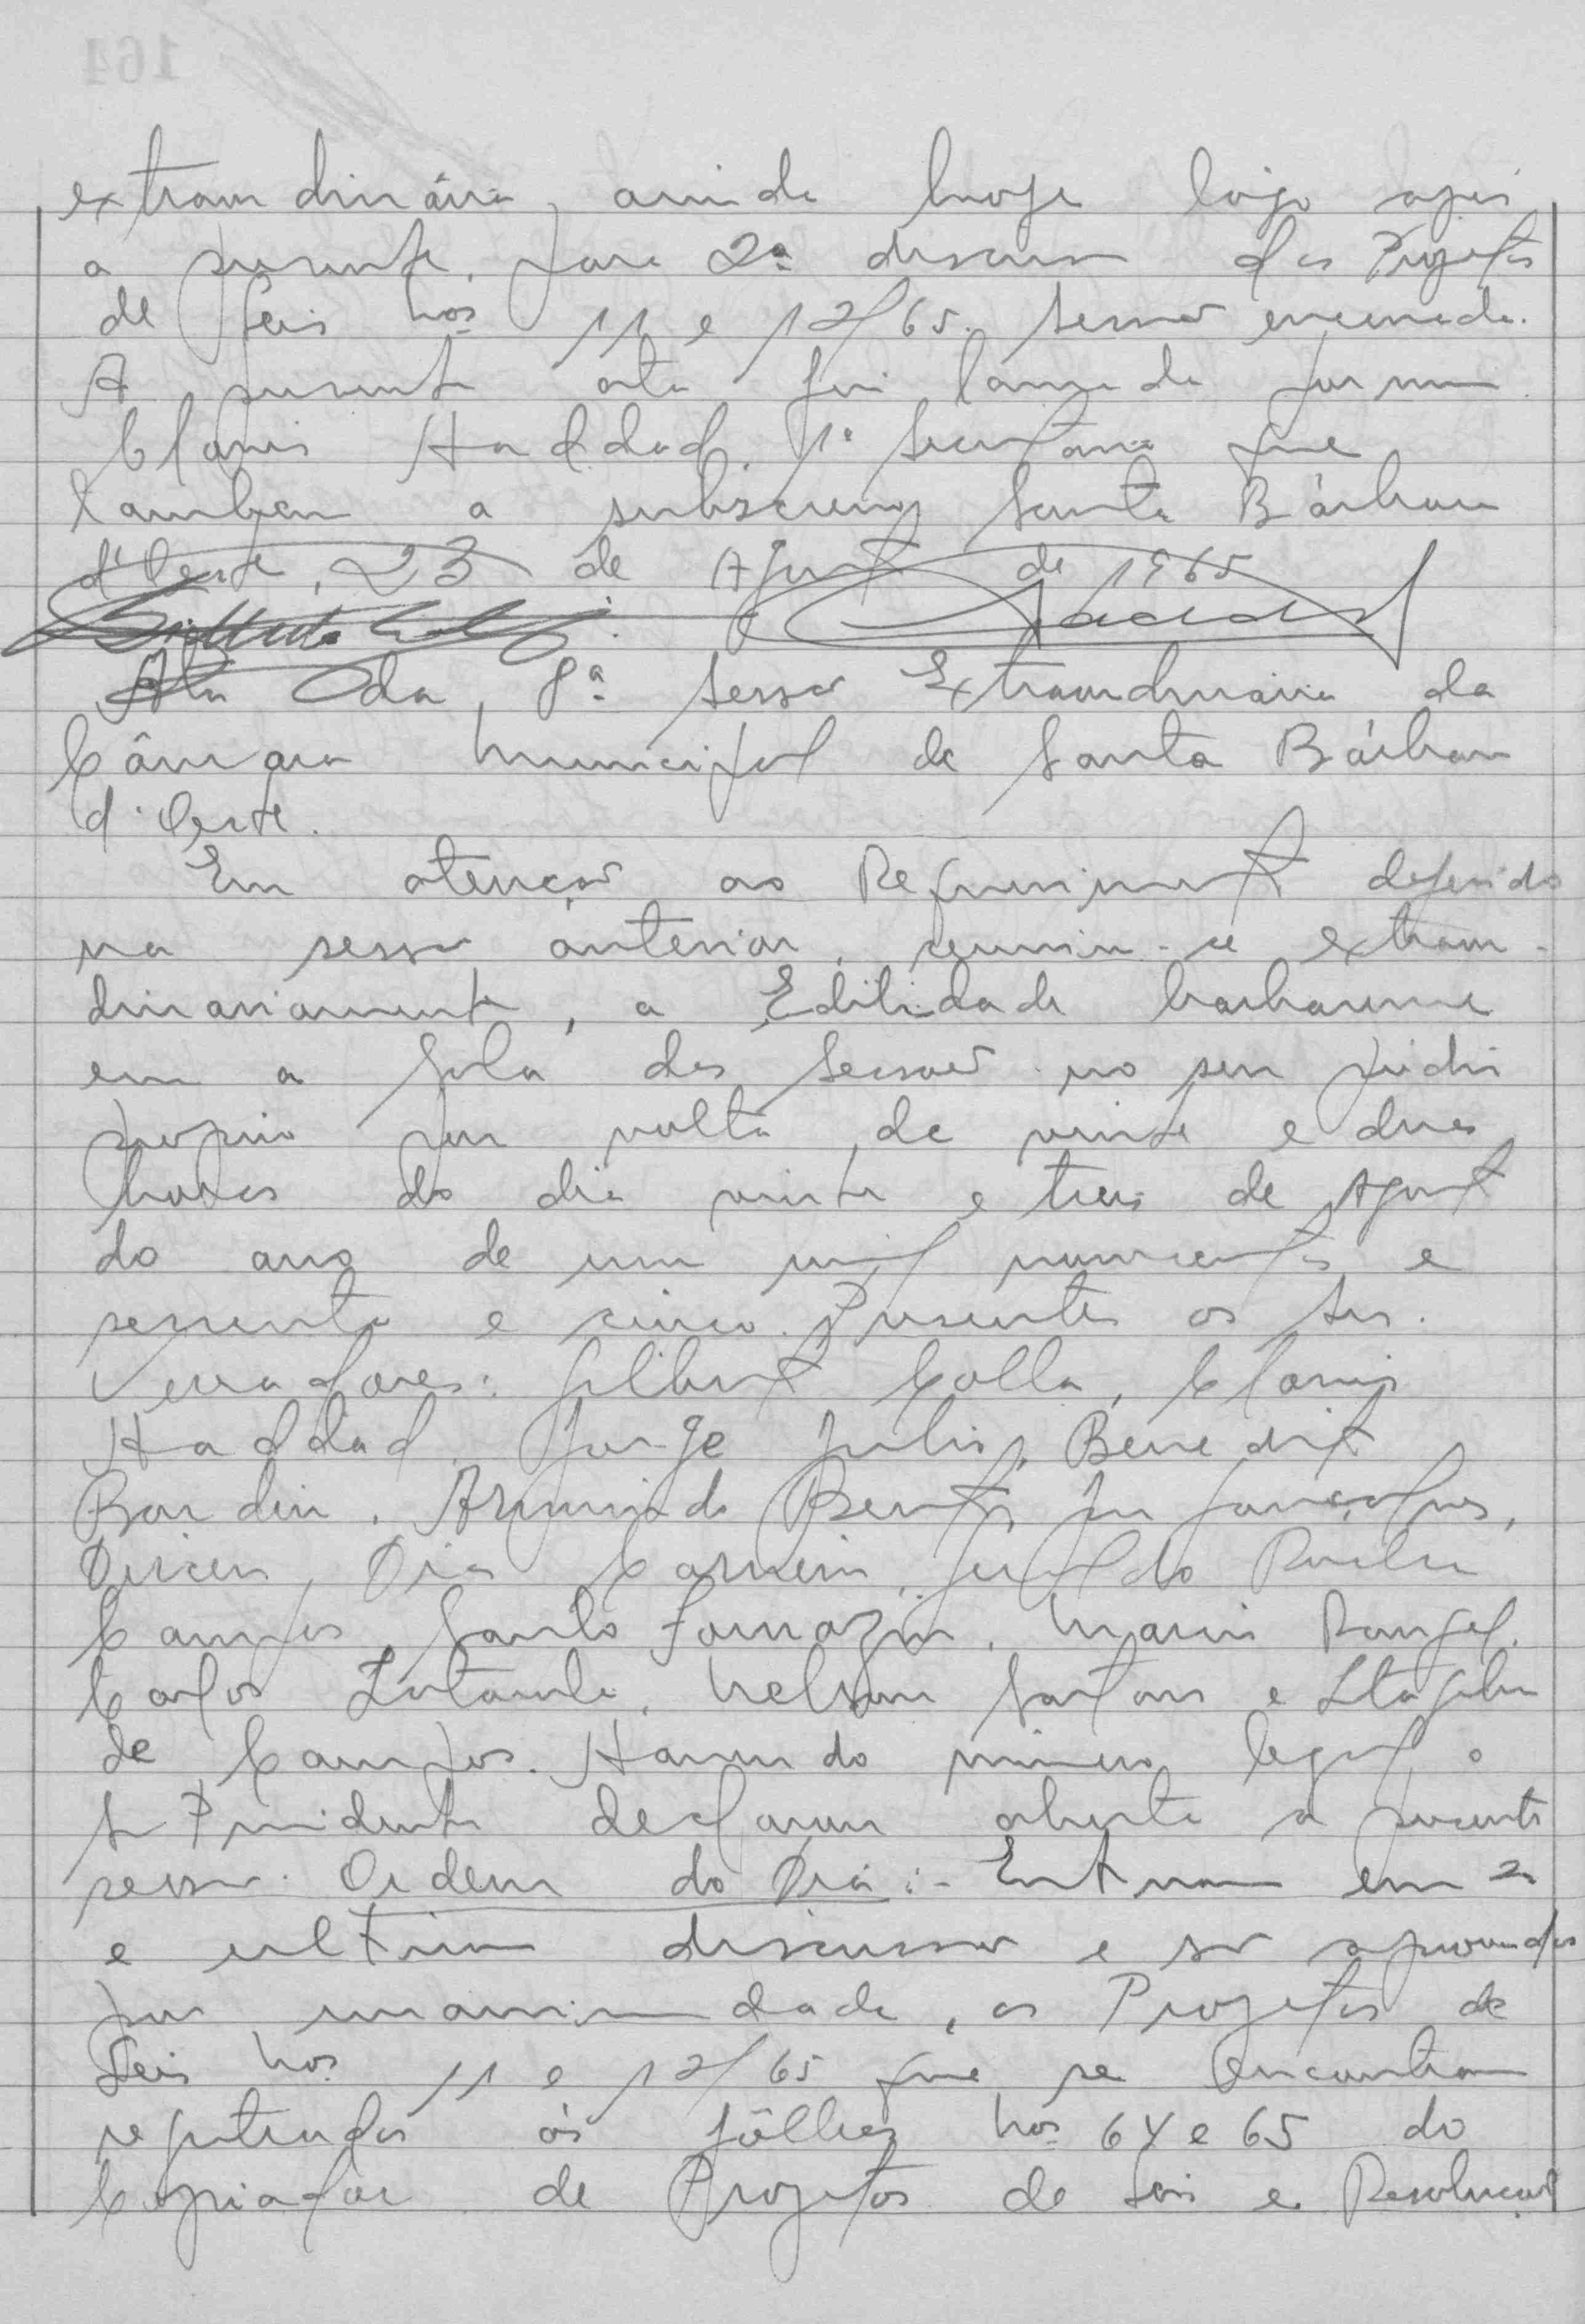 extraordinária, ainda hoje logo após
a presente, para 2ª discussão dos Projetos
de Leis nos 11 e 12/65. Sessão encerrada.
A presente ata foi lançada por mim
Clovis Haddad, 1º Secretário que
tambem a subscrevo Santa Bárbara
d'Oeste, 23 de Agosto de 1965
Haddad
Ata da 8ª Sessão Extraordinária da
Câmara Municipal de Santa Bárbara
d'Oeste.
Em atenção ao Requerimento deferido
na sessão anterior, reuniu-se extraor-
dinariamente, a Edilidade barbarense
em a Sala das Sessões no seu prédio
proprio por volta de vinte e duas
horas do dia vinte e treis de Agosto
do ano de um mil novecentos e
sessenta e cinco. Presentes os srs.
Vereadores: Gilberto Colla, Clovis
Haddad, Jorge Julio, Benedito
Bardin, Armindo Bento, José Gonçalves,
Dirceu Dias Carneiro, Geraldo Rocha
Campos, Santo Fornazin, Mario Rangel,
Carlos Nelson e
de Campos. Havendo número legal, o
Sr Presidente declarou aberta a presente
sessão. Ordem do Dia:- Entram em 2a
e ultima discussão e são aprovados
por unanimidade, os Projetos de
Leis nos 11 e 12/65 que se encontram
registrados ás fôlhas nos 64 e 65 do
Copiador de Projetos de Leis e Resoluções